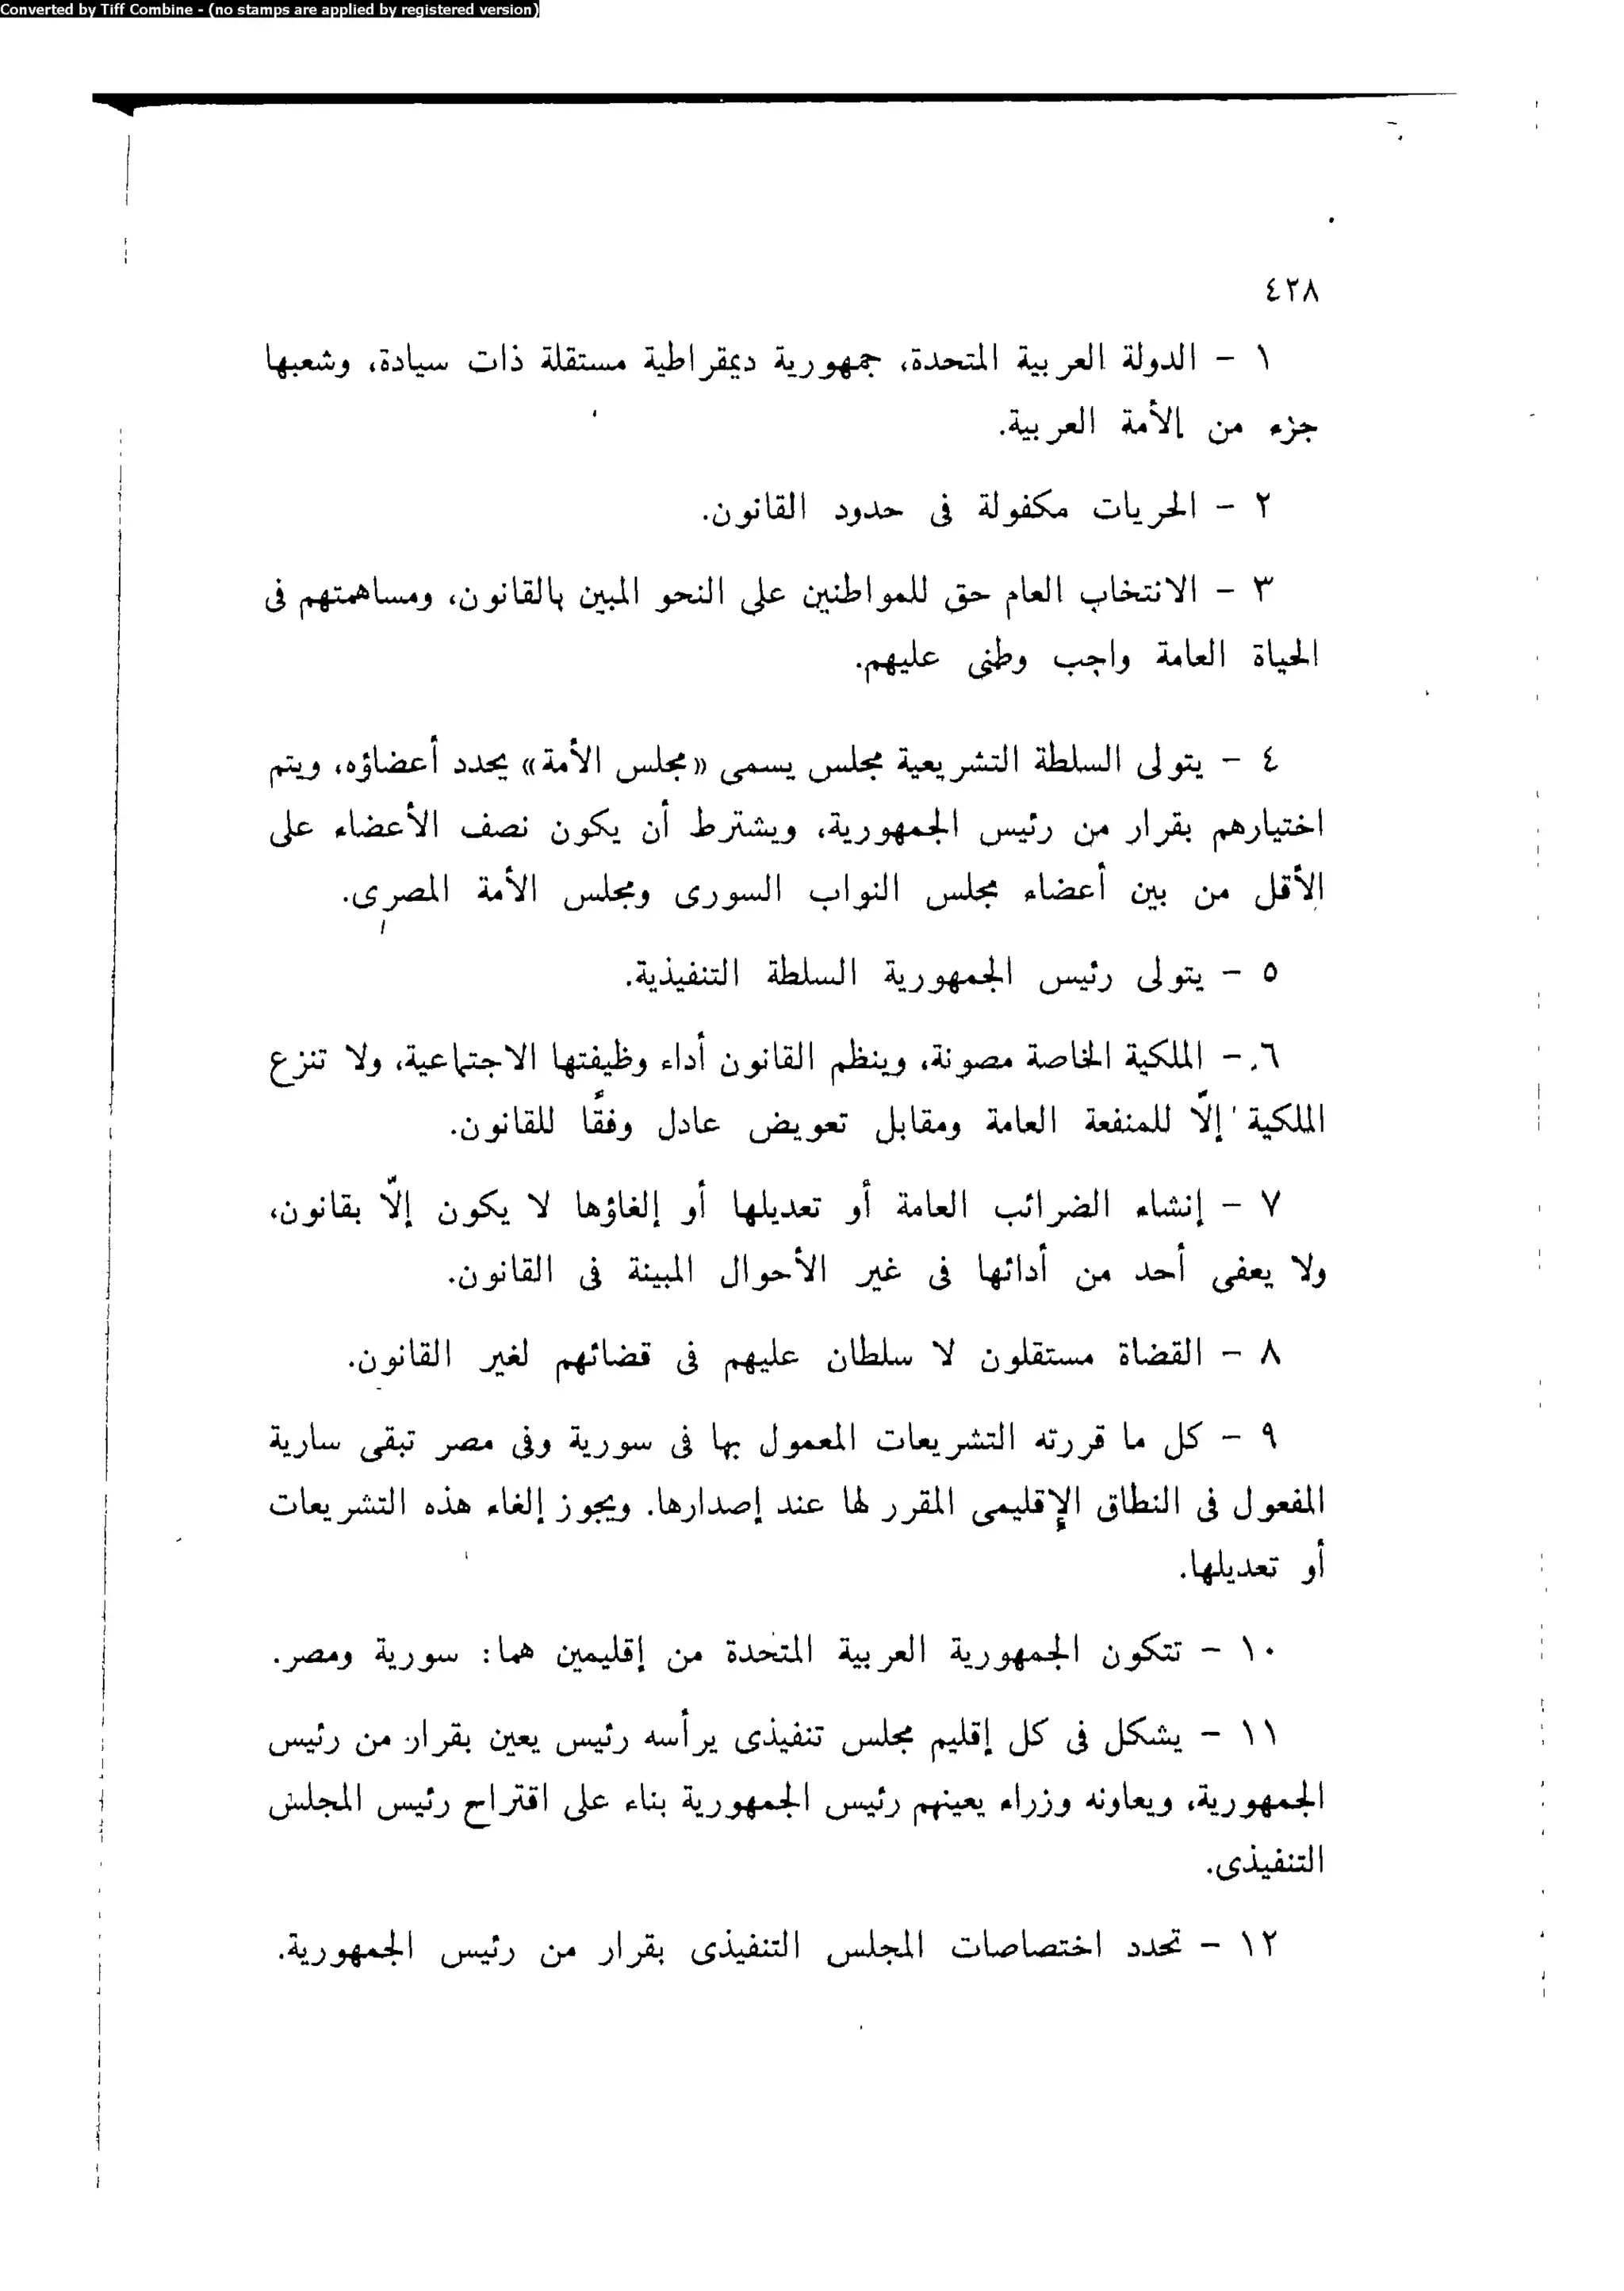 Converted by Tiff Combine - (no stamps are applied by registered version)
٤٢٨
١ - الدولة العربية المتحدة، جمهورية ديمقراطية مستقلة ذات سيادة، وشعبها
جزء من الأمة العربية.
٢ - الحريات مكفولة فى حدود القانون.
٣ - الانتخاب العام حق للمواطنين على النحو المبين بالقانون، ومساهمتهم فى
الحياة العامة واجب وطنى عليهم.
٤ - يتولى السلطة التشريعية مجلس يسمى «مجلس الأمة» يحدد أعضاؤه، ويتم
اختيارهم بقرار من رئيس الجمهورية، ويشترط أن يكون نصف الأعضاء على
الأقل من بين أعضاء مجلس النواب السورى ومجلس الأمة المصرى.
٥ - يتولى رئيس الجمهورية السلطة التنفيذية.
٦ - الملكية الخاصة مصونة، وينظم القانون أداء وظيفتها الاجتماعية، ولا تنزع
الملكية إلاّ للمنفعة العامة ومقابل تعويض عادل وفقًا للقانون.
٧ - إنشاء الضرائب العامة أو تعديلها أو إلغاؤها لا يكون إلاّ بقانون،
ولا يعفى أحد من أدائها فى غير الأحوال المبينة فى القانون.
٨ - القضاة مستقلون لا سلطان عليهم فى قضائهم لغير القانون.
٩ - كل ما قررته التشريعات المعمول بها فى سورية وفى مصر تبقى سارية
المفعول فى النطاق الإقليمى المقرر لها عند إصدارها. ويجوز إلغاء هذه التشريعات
أو تعديلها.
١٠ - تتكون الجمهورية العربية المتحدة من إقليمين هما: سورية ومصر.
١١ - يشكل فى كل إقليم مجلس تنفيذى يرأسه رئيس يعين بقرار من رئيس
الجمهورية، ويعاونه وزراء يعينهم رئيس الجمهورية بناء على اقتراح رئيس المجلس
التنفيذى.
١٢ - تحدد اختصاصات المجلس التنفيذى بقرار من رئيس الجمهورية.